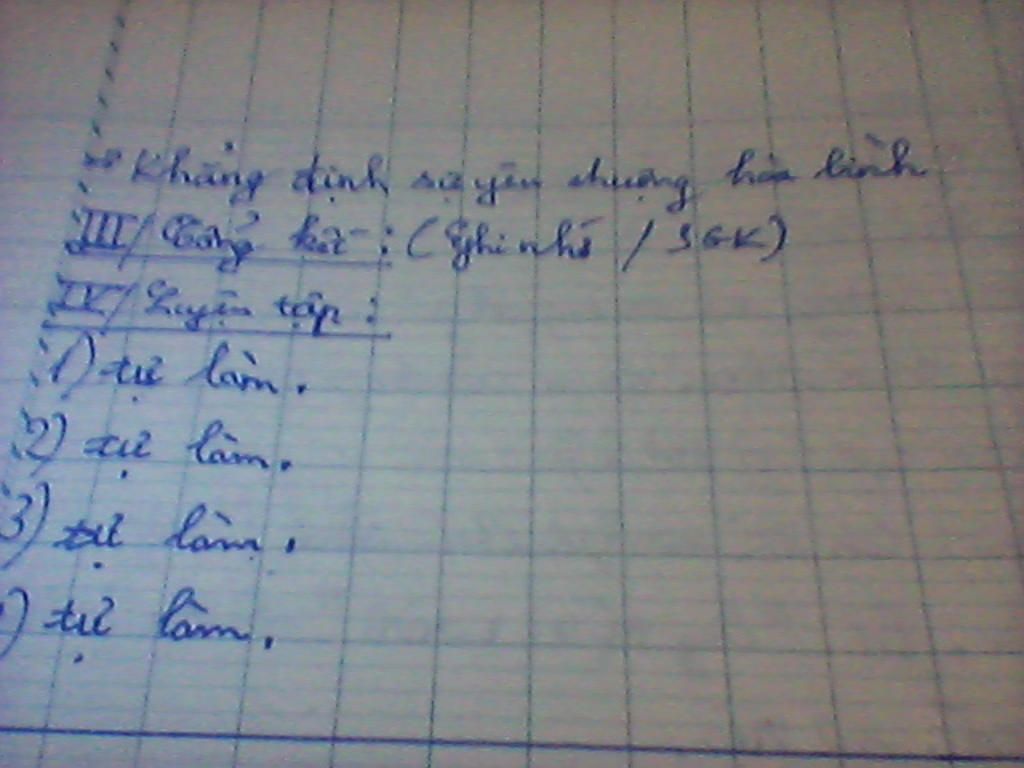 => Khẳng định sự yêu chuộng hòa bình
III/ Tổng kết : (Ghi nhớ / SGK)
IV/ Luyện tập :
1) tự làm.
2) tự làm.
3) tự làm.
) tự làm.